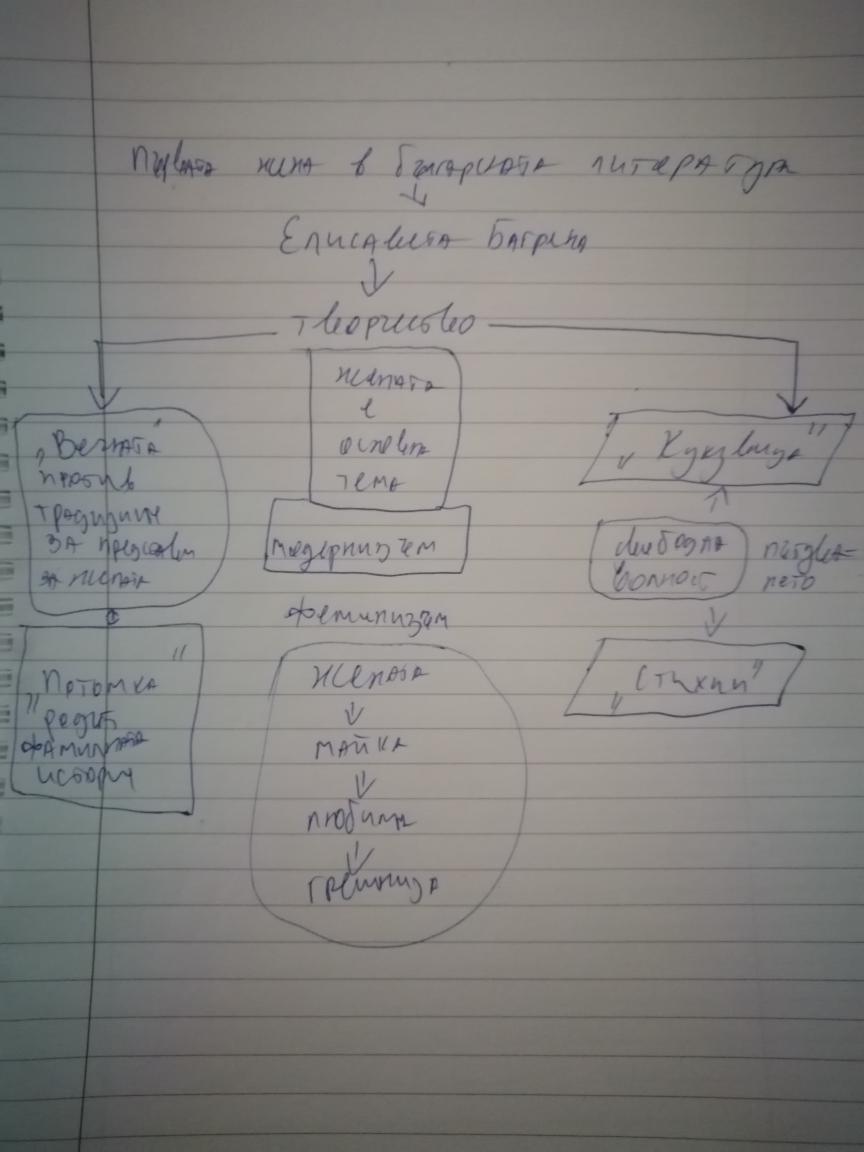 Първата жена в българската литература
Елисавета Багряна
творчество
жената
е
основна
тема
модернизъм
феминизъм
жената
майка
любима
грешница
„Вечната"
против
традиции
за
за жената
„Потомка"
родит
фамилната
история
„Кукувица"
свободна
волност
пътува-
нето
„Стихии"